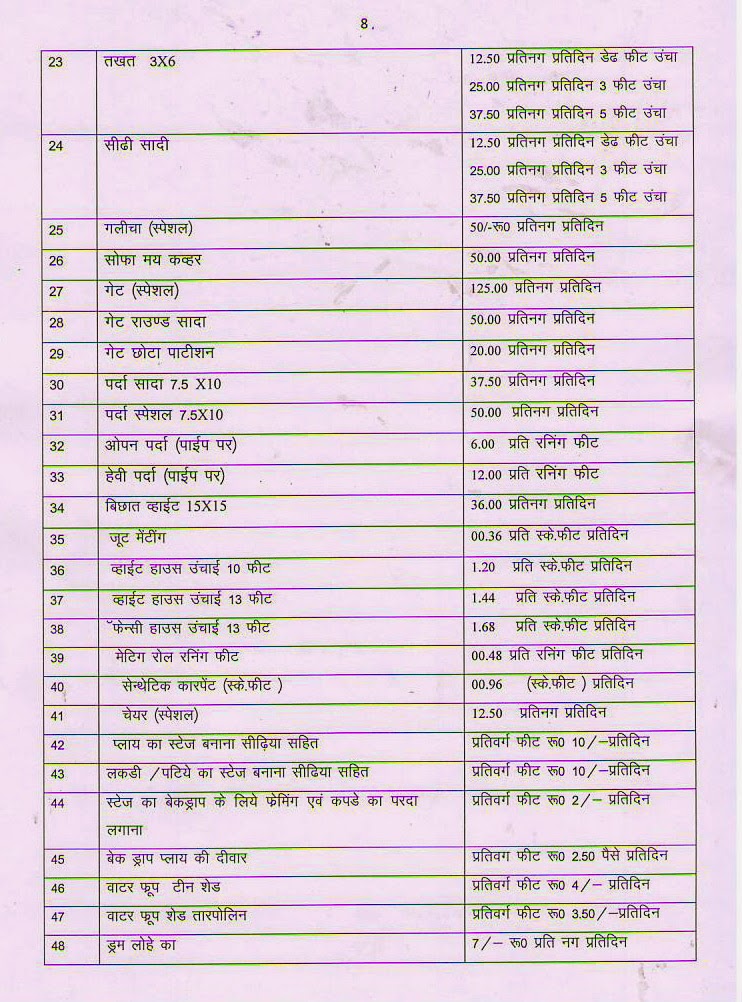 8.
23 तखत 3X6 12.50 प्रतिनग प्रतिदिन डेढ फीट उंचा
25.00 प्रतिनग प्रतिदिन 3 फीट उंचा
37.50 प्रतिनग प्रतिदिन 5 फीट उंचा
24 सीढी सादी 12.50 प्रतिनग प्रतिदिन डेढ फीट उंचा
25.00 प्रतिनग प्रतिदिन 3 फीट उंचा
37.50 प्रतिनग प्रतिदिन 5 फीट उंचा
25 गलीचा (स्पेशल) 50/-रू0 प्रतिनग प्रतिदिन
26 सोफा मय कव्हर 50.00 प्रतिनग प्रतिदिन
27 गेट (स्पेशल) 125.00 प्रतिनग प्रतिदिन
28 गेट राउण्ड सादा 50.00 प्रतिनग प्रतिदिन
29 गेट छोटा पाटीशन 20.00 प्रतिनग प्रतिदिन
30 पर्दा सादा 7.5 X10 37.50 प्रतिनग प्रतिदिन
31 पर्दा स्पेशल 7.5X10 50.00 प्रतिनग प्रतिदिन
32 ओपन पर्दा (पाईप पर) 6.00 प्रति रनिंग फीट
33 हेवी पर्दा (पाईप पर) 12.00 प्रति रनिंग फीट
34 बिछात व्हाईट 15X15 36.00 प्रतिनग प्रतिदिन
35 जूट मेंटींग 00.36 प्रति स्के.फीट प्रतिदिन
36 व्हाईट हाउस उंचाई 10 फीट 1.20 प्रति स्के.फीट प्रतिदिन
37 व्हाईट हाउस उंचाई 13 फीट 1.44 प्रति स्के.फीट प्रतिदिन
38 ॅफेन्सी हाउस उंचाई 13 फीट 1.68 प्रति स्के.फीट प्रतिदिन
39 मेटिग रोल रनिंग फीट 00.48 प्रति रनिंग फीट प्रतिदिन
40 सेन्थेटिक कारपेंट (स्के.फीट ) 00.96 (स्के.फीट ) प्रतिदिन
41 चेयर (स्पेशल) 12.50 प्रतिनग प्रतिदिन
42 प्लाय का स्टेज बनाना सीढ़िया सहित प्रतिवर्ग फीट रू0 10/–प्रतिदिन
43 लकडी /पटिये का स्टेज बनाना सीढिया सहित प्रतिवर्ग फीट रू0 10/–प्रतिदिन
44 स्टेज का बेकड्राप के लिये फ्रेमिंग एवं कपडे का परदा प्रतिवर्ग फीट रू0 2/– प्रतिदिन
लगाना
45 बेक ड्राप प्लाय की दीवार प्रतिवग फीट रू0 2.50 पैसे प्रतिदिन
46 वाटर फ्रूप टीन शेड प्रतिवर्ग फीट रू0 4/– प्रतिदिन
47 वाटर फ्रूप शेड तारपोलिन प्रतिवर्ग फीट रू0 3.50/–प्रतिदिन
48 ड्रम लोहे का 7/– रू0 प्रति नग प्रतिदिन